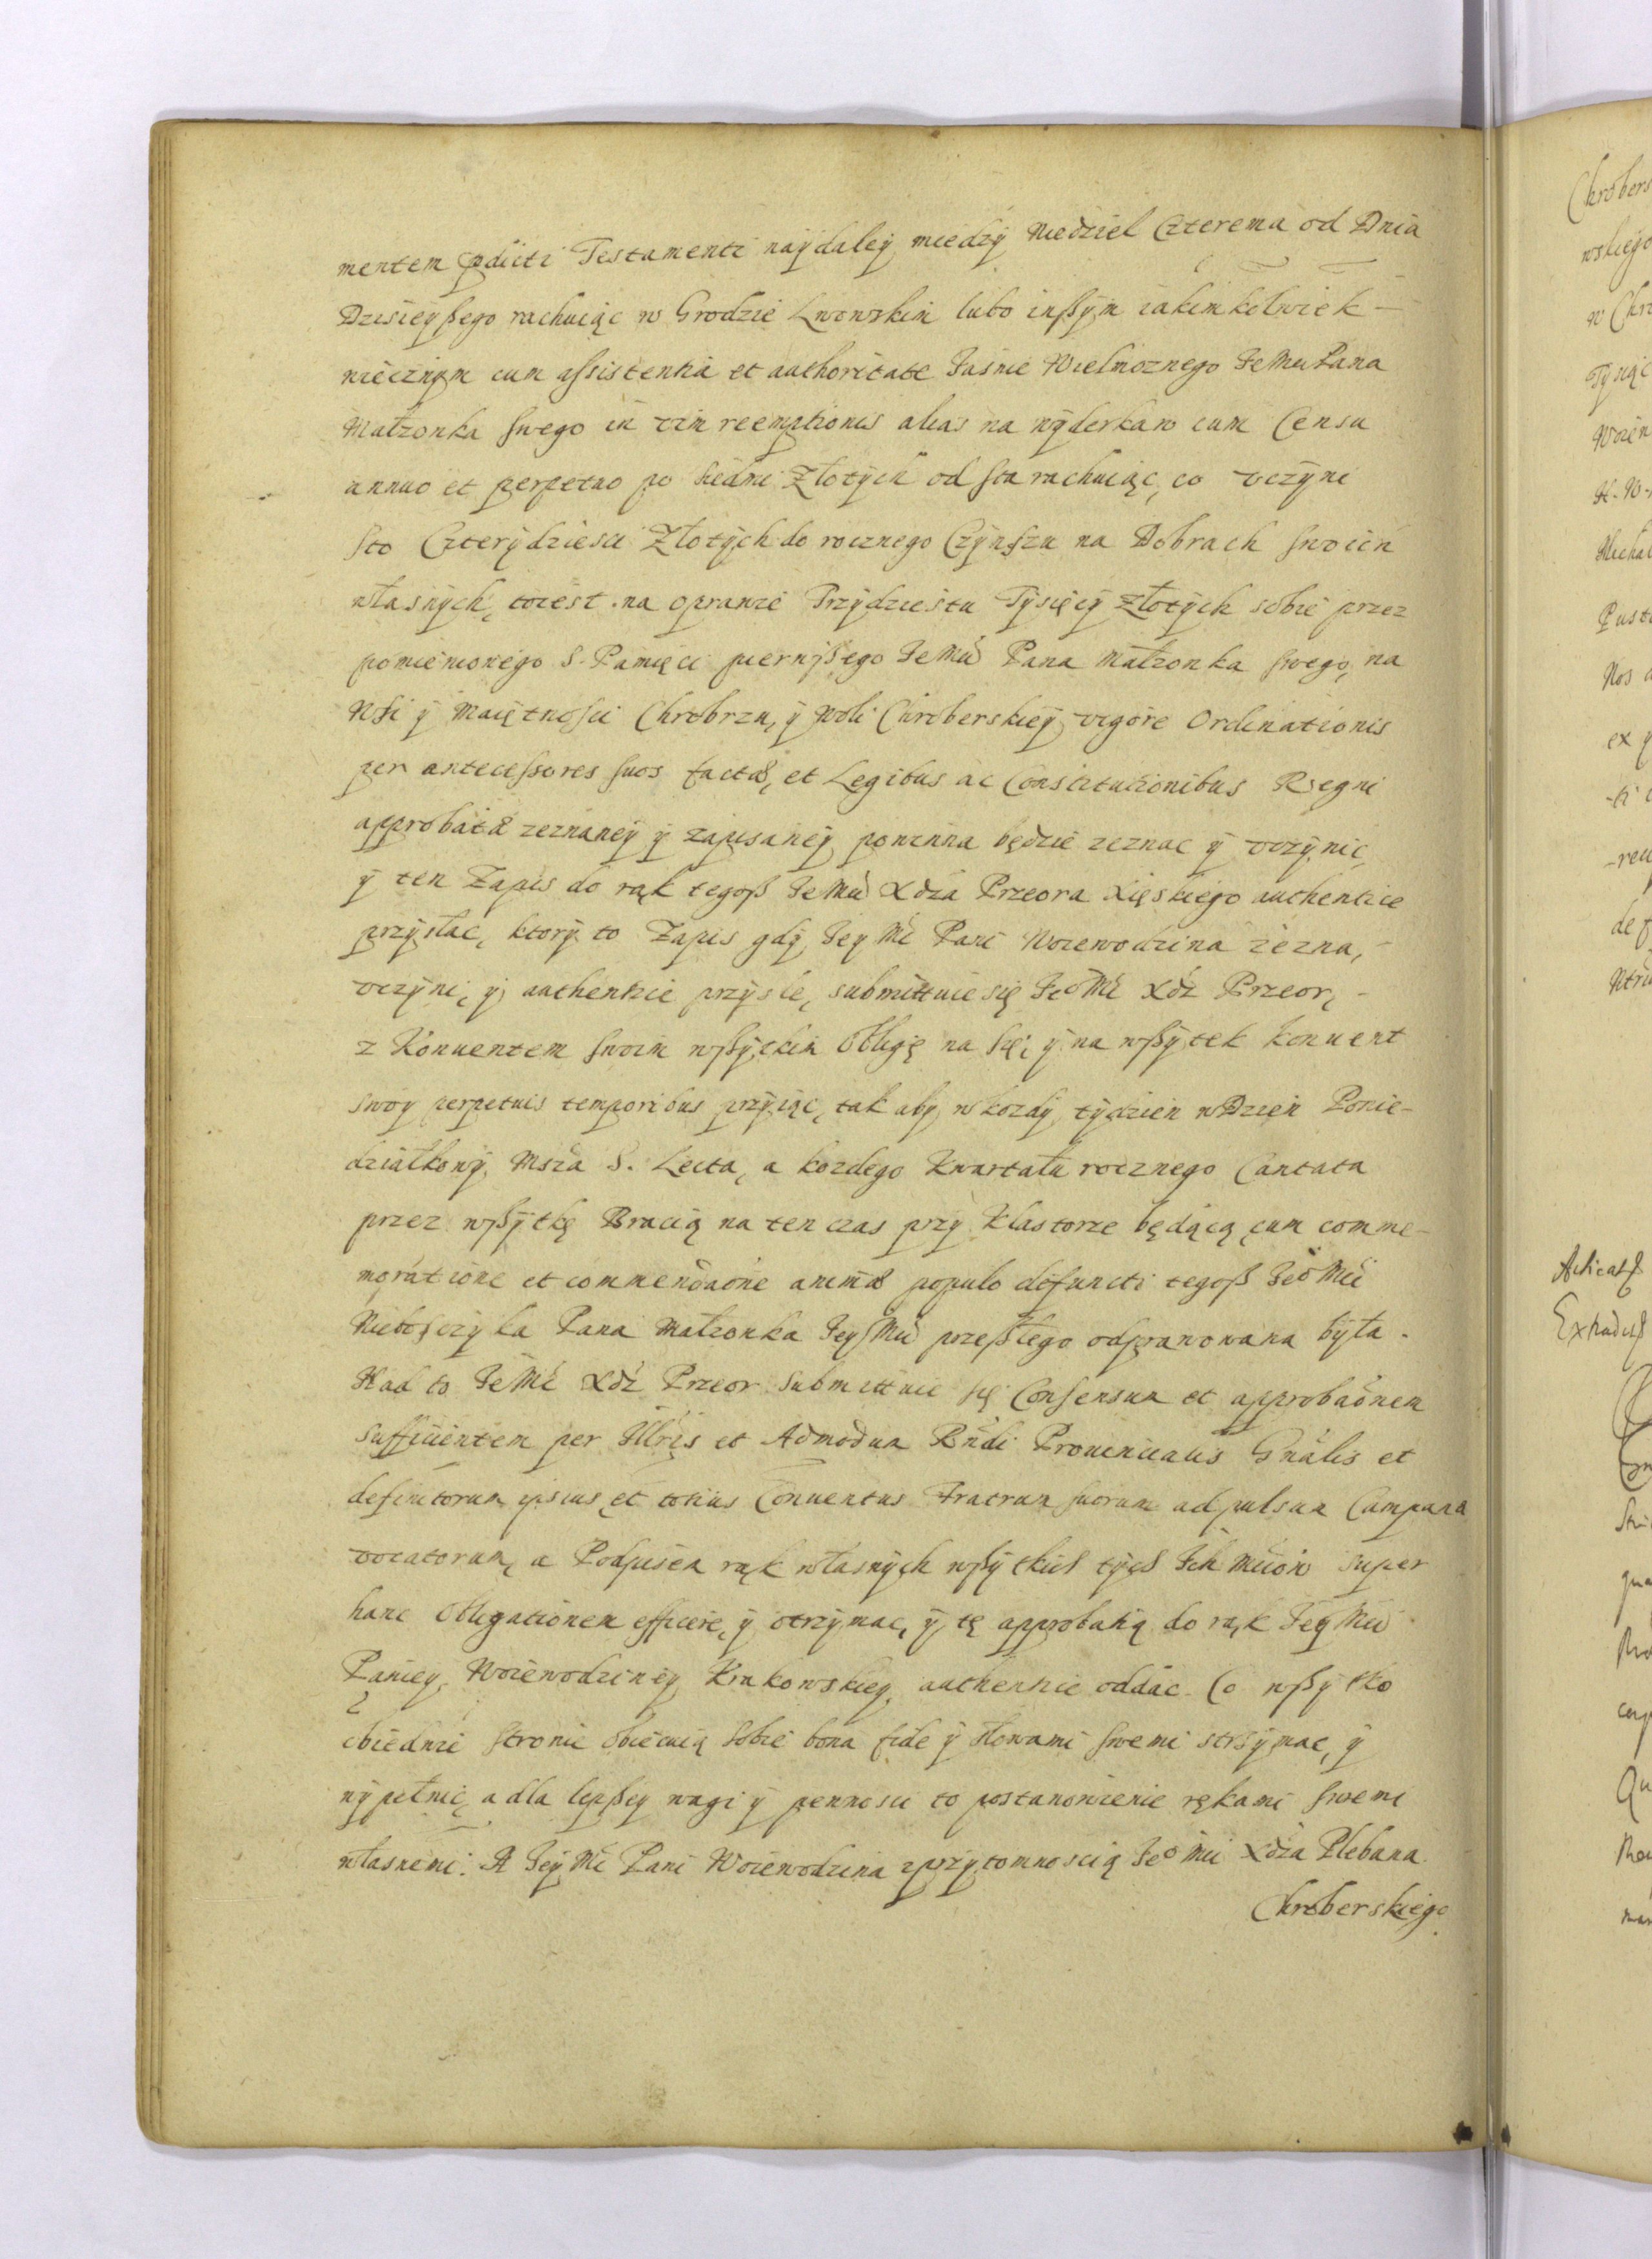 mentem pdicti Testamenti naydaley miedzy Niedziel Czterema od Dnia
Dzisieyßego rachuiąc w Grodzie Lwowskim lubo inßym iakimkolwiek
wiecznym cum assistentia et authoritate Jasnie Wielmoznego JeMci Pana
Małzonka swego in vim reemptionis alias na wyderkaw cum Censu
annuo et perpetuo po siedmi Złotych od sta rachuiąc, co vczyni
sto Czterydziesci Złotych do rocznego Czynszu na Dobrach swoich
własnych, toiest na oprawie Trzydziestu Tysięcy Złotych sobie przez
pomienionego S. Pamięci pierwßego JeMci Pana Małzonka swego, na
Wsi y Maiętnosci Chrobrzu, y Woli Chroberskiey vigore Ordinationis
per antecessores suos factæ, et Legibus ac Constitutionibus Regni
approbatæ zeznaney y zapisaney powinna będzie zeznac y vczynic,
y ten Zapis do rąk tegoß JeMci Xdza Przeora Xięskiego authentice
przysłac, ktory to Zapis gdy Jey Mc Pani Woiewodzina zezna,
vczyni, y authentice przysle, submittuie się Jeo Mc Xdz Przeor,
z Konuentem swoim wßyckim Obligę na się, y na wßytek konuent
swoy perpetuis temporibus przyiąc, tak aby w kozdy tydzien w Dzien Ponie-
działkowy Msza S. Lecta, a kozdego Kwartału rocznego Cantata
przez wßytkę Bracią na ten czas przy Klastorze będącą, cum comme-
moratione et commendaone animæ populo defuncti tegoß Jeo Mci
Nieboszczyka Pana Małzonka Jey Mci przeßłego odprawowana była.
Nad to Je Mc Xdz Przeor submittuie się Consensum et approbaonem
sufficientem per Illris et Admodum Rndi Prouincialis Gnalis et
definitorum ipsius et totius Conuentus Fratrum suorum ad pulsum Campanæ
vocatorum, a Podpisem rąk własnych wßytkich tych Ich Mciow super
hanc Obligationem efficere, y otrzymac, y tę approbatią do rąk Jey Mci
Paniey Woiewodziney Krakowskiey authentice oddac. Co wßytko
obiedwie stronie obiecuią sobie bona fide y słowami swemi strzymac, y
wypełnic, a dla lepßey wagi y pewnosci to postanowienie rękami swemi
własnemi. A Jey Mc Pani Woiewodzina z przytomnoscią Jeo Mci Xdza Plebana
Chroberskiego